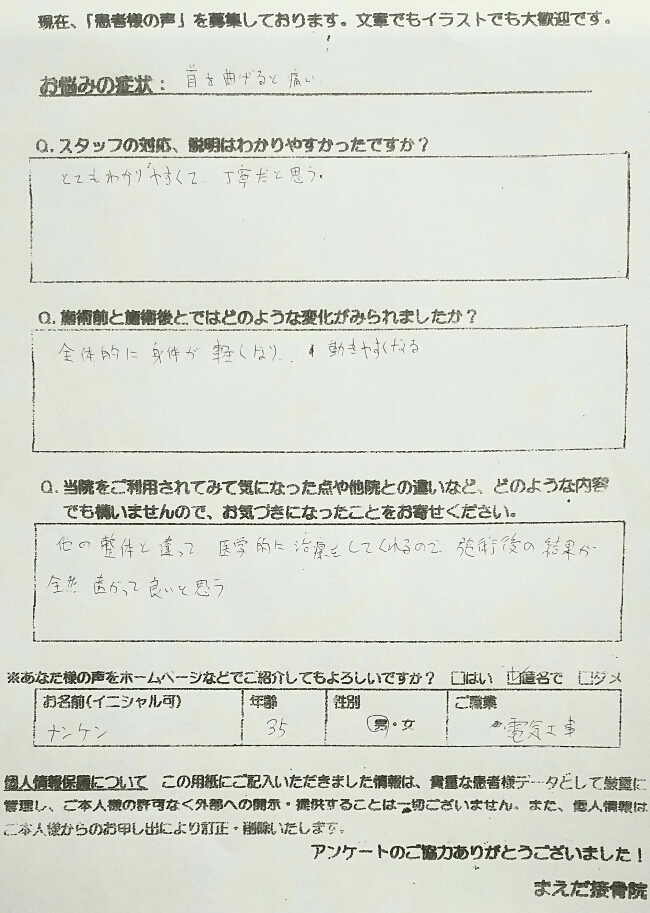 現在、「患者様の声」を募集しております。文章でもイラストでも大歓迎です。
お悩みの症状： 首を曲げると痛い
Q. スタッフの対応、説明はわかりやすかったですか？
とてもわかりやすくて、丁寧だと思う。
Q. 施術前と施術後とではどのような変化がみられましたか？
全体的に身体が軽くなり、動きやすくなる
Q. 当院をご利用されてみて気になった点や他院との違いなど、どのような内容
でも構いませんので、お気づきになったことをお寄せください。
他の整体と違って、医学的に治療をしてくれるので、施術後の結果が
全然違かって良いと思う
※あなた様の声をホームページなどでご紹介してもよろしいですか？ □はい ☑匿名で □ダメ
お名前(イニシャル可) 年齢 性別 ご職業
ナンケン 35 男・女 電気工事
個人情報保護について この用紙にご記入いただきました情報は、貴重な患者様データとして厳重に
管理し、ご本人様の許可なく外部への開示・提供することは一切ございません。また、個人情報は
ご本人様からのお申し出により訂正・削除いたします。
アンケートのご協力ありがとうございました！
まえだ接骨院